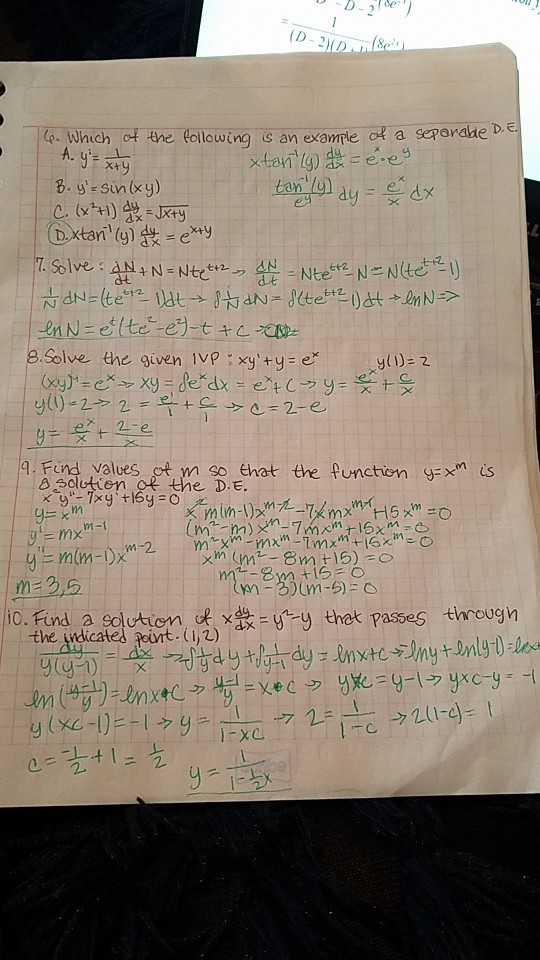 D - D - 2 (8e
= 1/((D-2)(D+1)) (8e
6. Which of the following is an example of a seperable D.E.
A. y' = 1/(x+y)
x tan⁻¹(y) dy/dx = eˣ·eʸ
B. y' = sin(xy)
tan⁻¹(y)/eʸ dy = eˣ/x dx
C. (x²+1) dy/dx = √x+y
D. x tan⁻¹(y) dy/dx = e^(x+y)
7. Solve: dN/dt + N = Nte^(t+2) → dN/dt = Nte^(t+2) - N = N(te^(t+2) - 1)
1/N dN = (te^(t+2) - 1)dt → ∫ 1/N dN = ∫(te^(t+2) - 1)dt → lnN =>
lnN = eᵗ(te² - e²) - t + c
8. Solve the given IVP: xy' + y = eˣ y(1) = 2
(xy)' = eˣ → xy = ∫eˣdx = eˣ + C → y = eˣ/x + C/x
y(1) = 2 → 2 = e¹/1 + C/1 → C = 2 - e
y = eˣ/x + (2-e)/x
9. Find values of m so that the function y = xᵐ is
a solution of the D.E.
x²y'' - 7xy' + 15y = 0
y = xᵐ x² m(m-1)x^(m-2) - 7x mx^(m-1) + 15xᵐ = 0
y' = mx^(m-1) (m² - m)xᵐ - 7mxᵐ + 15xᵐ = 0
m²xᵐ - mxᵐ - 7mxᵐ + 15xᵐ = 0
y'' = m(m-1)x^(m-2) xᵐ(m² - 8m + 15) = 0
m² - 8m + 15 = 0
m = 3, 5 (m - 3)(m - 5) = 0
10. Find a solution of x dy/dx = y² - y that passes through
the indicated point. (1,2)
dy/(y(y-1)) = dx/x → -∫ 1/y dy + ∫ 1/(y-1) dy = lnx + c → -lny + ln(y-1) = lnx+
ln((y-1)/y) = lnx + C → (y-1)/y = x•c → yxc = y - 1 → yxc - y = -1
y(xc - 1) = -1 → y = 1/(1-xc) → 2 = 1/(1-c) → 2(1-c) = 1
c = -1/2 + 1 = 1/2 y = 1/(1 - 1/2 x)